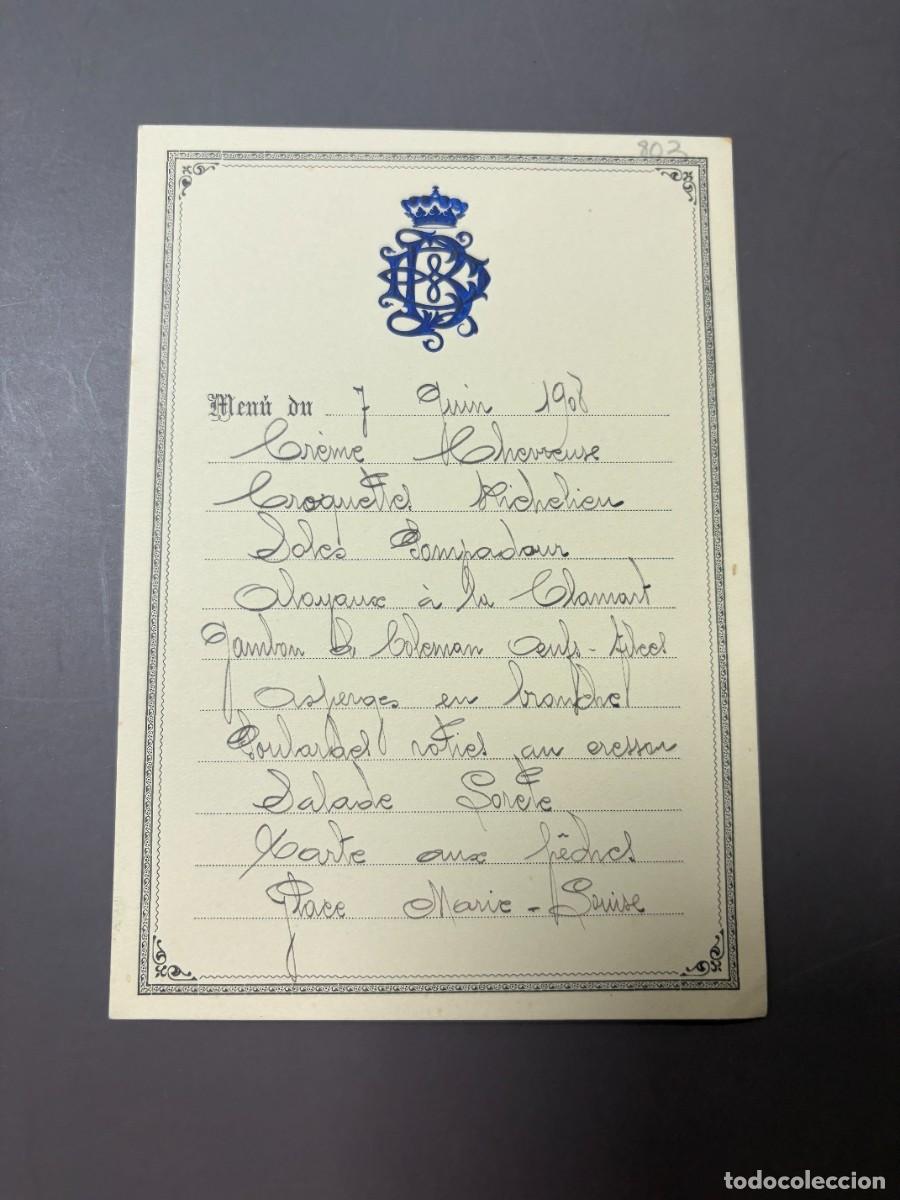 802
Menú du 7 Juin 1908
Crème Chevreuse
Croquettes Richelieu
Soles Pompadour
Aloyaux à la Clamart
Jambon de Coleman Oeufs-
Asperges en branches
Poulardes roties au cresson
Salade Lorete
Tarte aux pêches
Glace Marie-Louise
todocoleccion